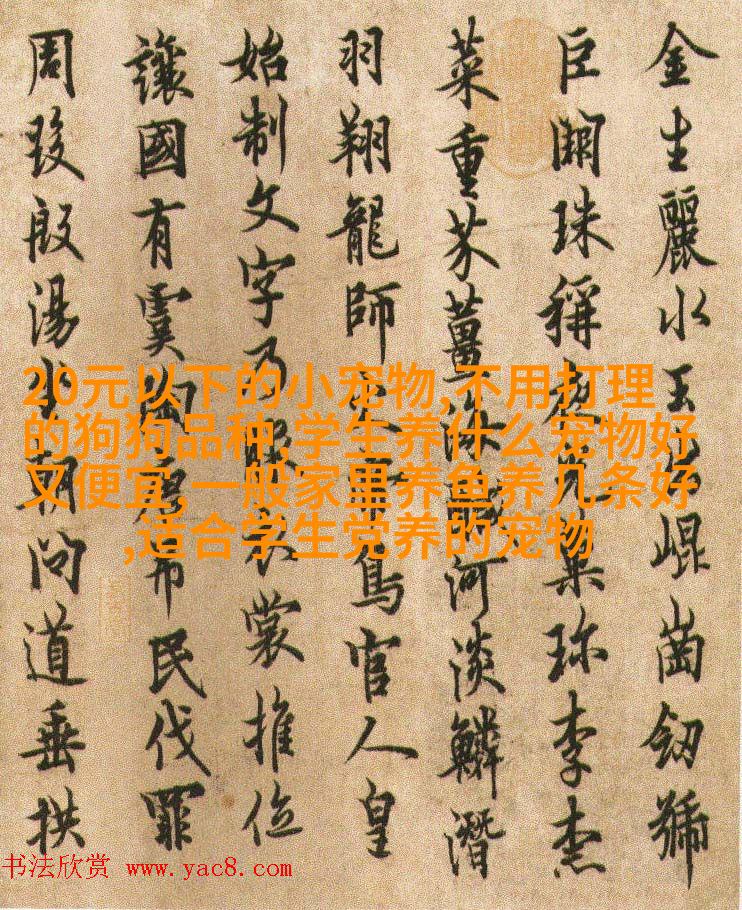 金生麗水玉出崐崗劒號
巨闕珠稱夜光菓珎李柰
菜重芥薑海醎河淡鱗潛
羽翔龍師火帝鳥官人皇
始制文字乃服衣裳推位
讓國有虞陶唐弔民伐罪
周發殷湯坐朝問道垂拱
20元以下的小宠物,不用打理
的狗狗品种,学生养什么宠物好
又便宜,一般家里养鱼养几条好
,适合学生党养的宠物
书法欣赏 www.yac8.com